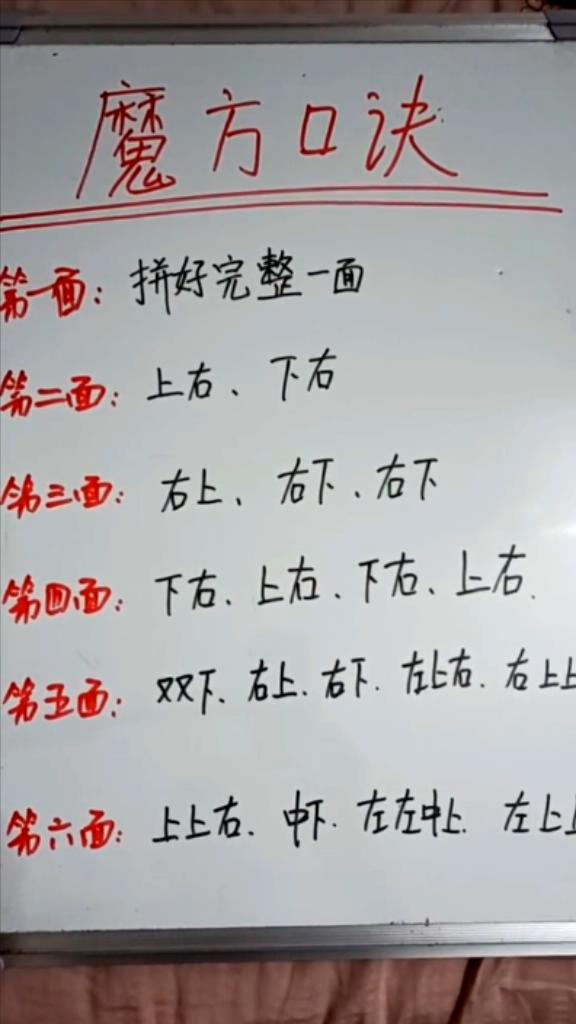 魔方口诀
第一面：拼好完整一面
第二面：上右、下右
第三面：右上、右下、右下
第四面：下右、上右、下右、上右.
第五面：双下、右上、右下.左上右.右上上
第六面：上上右.中下.左左中上.左上上